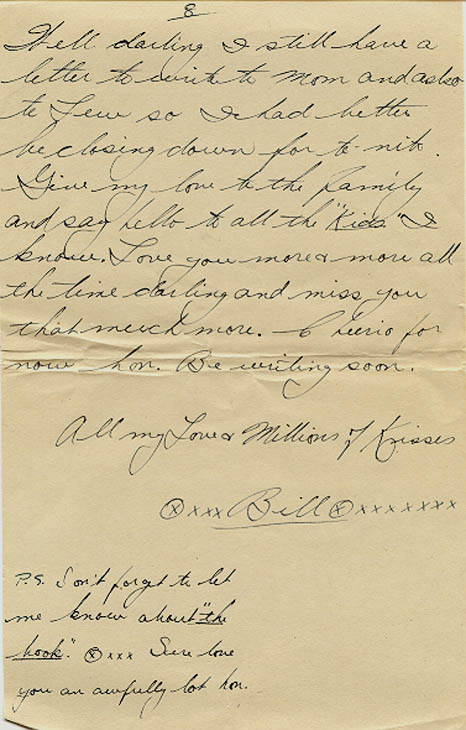 8
Well darling I still have a
letter to write to Mom and also
to Lew so I had better
be closing down for to-nite.
Give my love to the family
and say hello to all the "Kids" I
know. Love you more & more all
the time darling and miss you
that much more. Cheerio for
now hon. Be writing soon.
All my Love & Millions of Knisses
ⓧxxx Bill ⓧxxxxxxxx
P.S. Don't forget to let
me know about "the
hook". ⓧxxx Sure love
you an awfully lot hon.